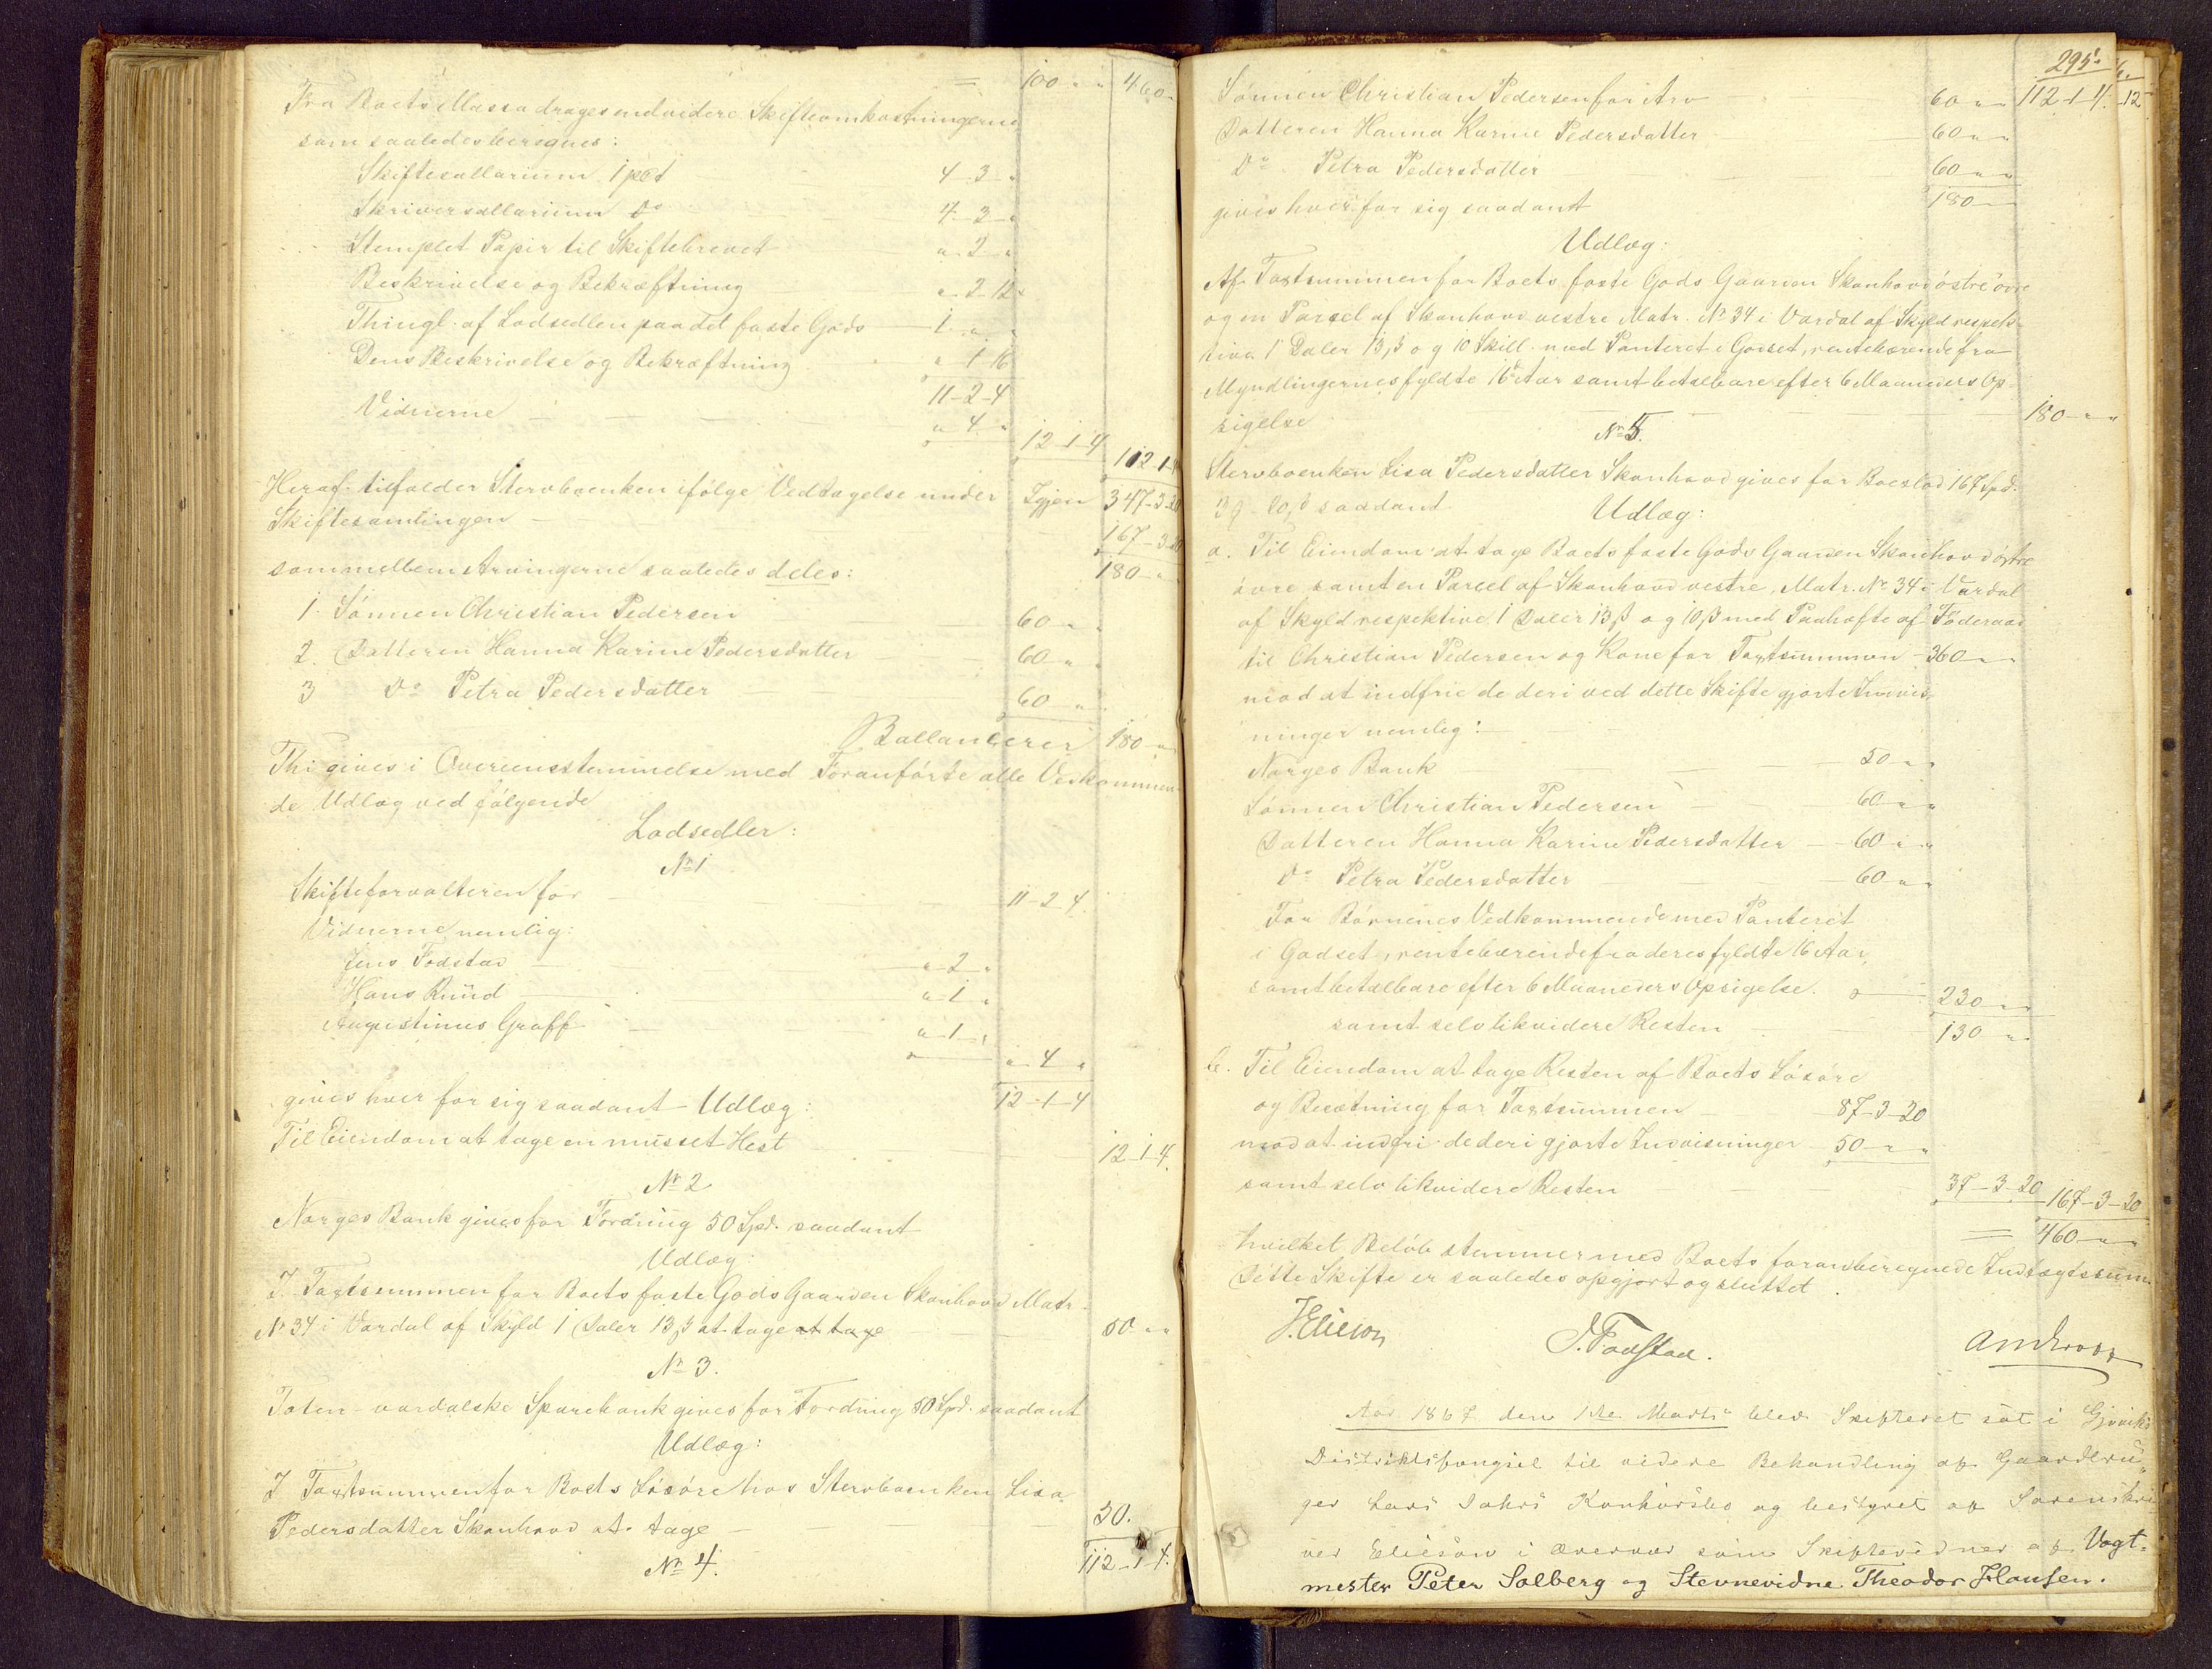 = 100 " " 460 "
Fra Boets Massa drages endvidere Skifteomkostningerne
som saaledes beregnes:
Skiftesallarium 1 pCt 4-3-"
Skriversallarium Do 4-3-"
Stemplet Papir til Skiftebrevet "-2-"
Beskrivelse og Bekræftning "-2-12
Thingl. af Lodsedlen paa det faste Gods 1-"-"
Dens Beskrivelse og Bekræftning "-1-16
11-2-4
Vidnerne "-4-"
12-1-4 112-1-4
Igjen 347-3-20
Heraf tilfalder Stervboenken ifølge Vedtagelse under
Skiftesamlingen 167-3-20
som mellem Arvingerne saaledes deles: 180-"
1. Sønnen Christian Pedersen 60 " "
2. Datteren Hanna Karine Pedersdatter 60 " "
3 Do Petra Pedersdatter 60 "
Ballancerer 180 "
Thi gives i Overeensstemmelse med Foranførte alle Vedkommen-
de Udlæg ved følgende
Lodsedler:
No 1
Skifteforvalteren for 11-2-4
Vidnerne nemlig:
Jens Fodstad "-2-"
Hans Ruud "-1-"
Augustinus Graff "-1-"
"-4-"
gives hver for sig saadant Udlæg: 12-1-4
Til Eiendom at tage en musset Hest 12-1-4
No 2
Norges Bank gives for Fordring 50 Spd. saadant
Udlæg:
I Taxtsummen for Boets faste Gods Gaarden Skonhovd Matr.
No 34 i Vardal af Skyld 1 Daler 13 ß at tage at tage 50 " "
No 3.
Toten-vardalske Sparebank gives for Fordring 50 Spd. saadant
Udlæg:
I Taxtsummen for Boets Løsøre hos Stervboenken Lisa
Pedersdatter Skonhovd at tage 50.
No 4. 112-1-4.
295.
Sønnen Christian Pedersen for Arv 60 " " 112-1-4.
Datteren Hanna Karine Pedersdatter 60 " "
Do. Petra Pedersdatter 60 " "
gives hver for sig saadant 180 "
Udlæg:
Af Taxtsummen for Boets faste Gods Gaarden Skonhovd østre øvre
og en Parsel af Skonhovd vestre Matr. No 34 i Vardal af Skyld respek-
tive 1 Daler 13 ß og 10 Skill. med Panteret i Godset, rentebærende fra
Myndlingernes fyldte 16de Aar samt betalbare efter 6 Maaneders Op-
sigelse 180 " "
No 5.
Stervboenken Lisa Pedersdatter Skonhovd gives for Boeslod 167 Spd.
3 ƒ 20 ß saadant Udlæg:
a. Til Eiendom at tage Boets faste Gods Gaarden Skonhovd østre
øvre samt en Parcel af Skonhovd vestre, Matr. No 34 i Vardal
af Skyld respektive 1 Daler 13 ß og 10 ß med Paahæfte af Føderaad
til Christian Pedersen og Kone for Taxtsummen 360 "
mod at indfrie de deri ved dette Skifte gjorte Indvis-
ninger nemlig:
Norges Bank 50 " "
Sønnen Christian Pedersen 60 " "
Datteren Hanna Karine Pedersdatter 60 " "
Do Petra Pedersdatter 60 " "
For Børnenes Vedkommende med Panteret
i Godset, rentebærende fra deres fyldte 16 Aar,
samt betalbare efter 6 Maaneders Opsigelse. 230 "
samt selv likvidere Resten 130 "
b. Til Eiendom at tage Resten af Boets Løsøre
og Besætning for Taxtsummen 87-3-20
mod at indfri de deri gjorte Indvisninger 50 " "
samt selv likvidere Resten 37-3-20 167-3-20
= 460 "
hvilket Beløb stemmer med Boets foranberegnede Indtægtssum.
Dette Skifte er saaledes opgjort og sluttet.
J. Elieson J. Fodstad.
Aar 1867 den 1ste Marts blev Skifteret sat i Gjøviks
Distriktsfængsel til videre Behandling af Gaardbru-
ger Lars Jahrs Konkursbo og bestyret af Sorenskri-
ver Elieson i Overvær som Skiftevidner af Vagt-
mester Peter Solberg og Stevnevidne Theodor Hansen.